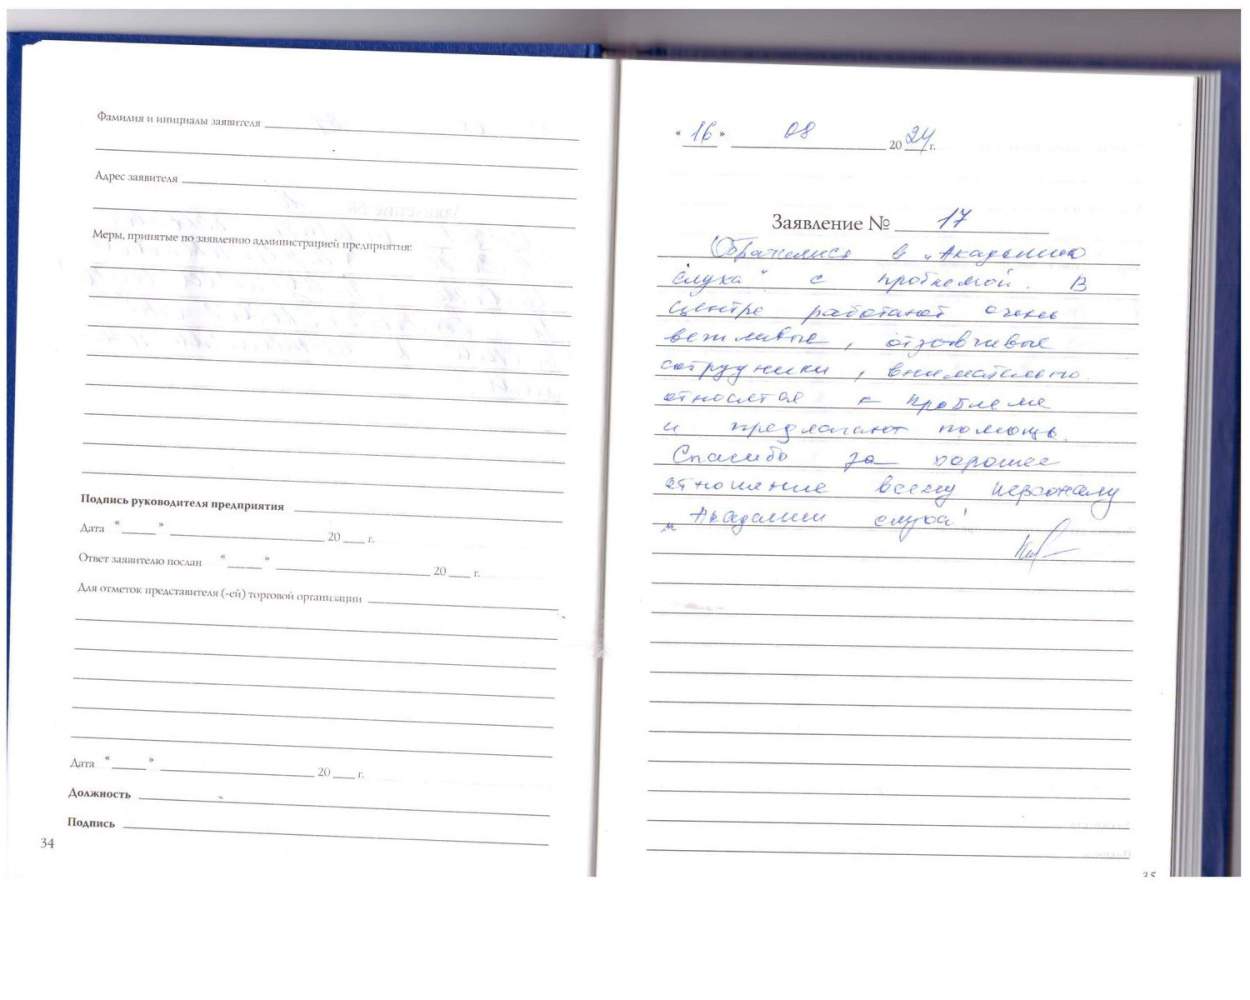 Фамилия и инициалы заявителя
Адрес заявителя
Меры, принятые по заявлению администрацией предприятия:
Подпись руководителя предприятия
Дата "____" ____ 20 ___ г.
Ответ заявителю послан "____" ____ 20 ___ г.
Для отметок представителя (-ей) торговой организации
Дата "____" ____ 20 ___ г.
Должность
Подпись
34
"16" 08 2024 г.
Заявление № 17
Обратились в "Академию
слуха" с проблемой. В
центре работают очень
вежливые, отзывчивые
сотрудники, внимательно
относятся к проблеме
и предлагают помощь.
Спасибо за хорошее
отношение всему персоналу
"Академии слуха!
35